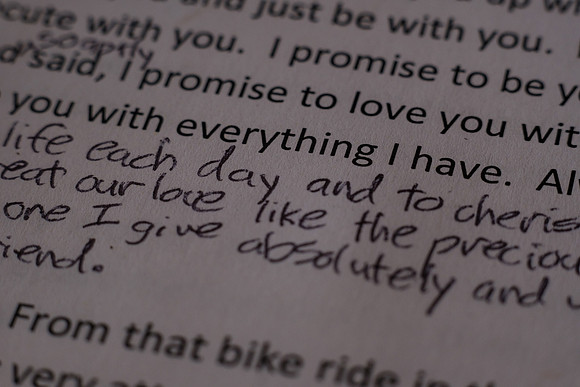 and just be with you.
cute with you. I promise to be y
soapily
d said, I promise to love you wit
you with everything I have. Al
life each day and to cheris
eat our love like the preciou
one I give absolutely and
iend.
From that bike ride
very